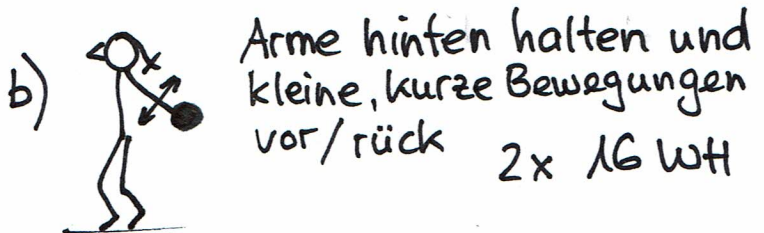 b) Arme hinten halten und
kleine, kurze Bewegungen
vor/rück
2x 16 WH